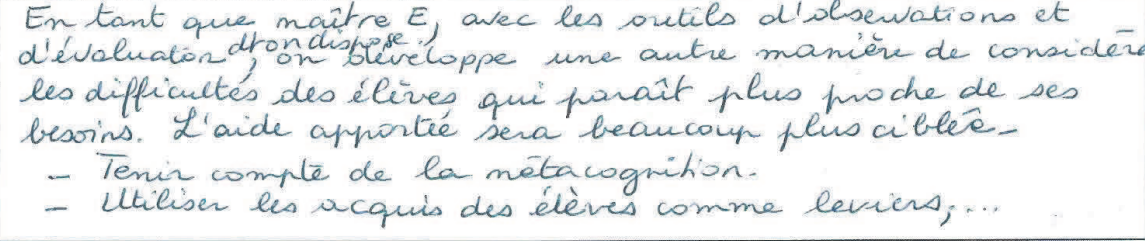 En tant que maître E, avec les outils d'observations et
d'évaluation dt on dispose, on développe une autre manière de considére
les difficultés des élèves qui paraît plus proche de ses
besoins. L'aide apportée sera beaucoup plus ciblée-
- Tenir compte de la métacognition.
- Utiliser les acquis des élèves comme leviers;...